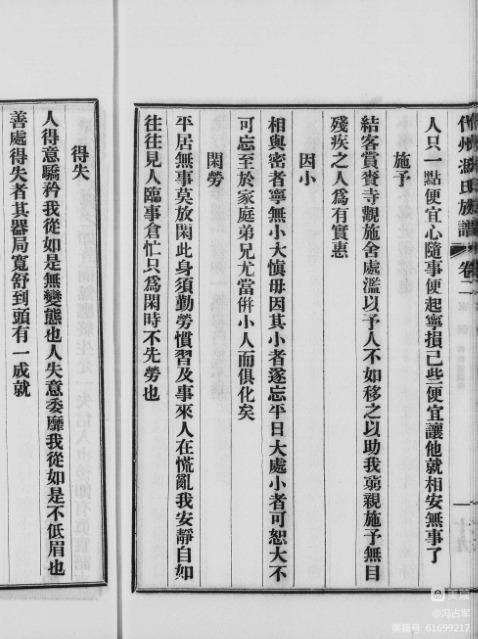 代州馮氏族譜 卷二
人只一點便宜心隨事便起寧損己些便宜讓他就相安無事了
施予
結客賞賚寺觀施舍處濫以予人不如移之以助我窮親施予無目
殘疾之人爲有實惠
因小
相與密者寧無小大慎毋因其小者遂忘平日大處小者可恕大不
可忘至於家庭弟兄尤當倂小人而俱化矣
閑勞
平居無事莫放閑此身須勤勞慣習及事來人在慌亂我安靜自如
往往見人臨事倉忙只爲閑時不先勞也
得失
人得意驕矜我從如是無變態也人失意委靡我從如是不低眉也
善處得失者其器局寬舒到頭有一成就
美篇
@冯占军
美篇号: 61699217